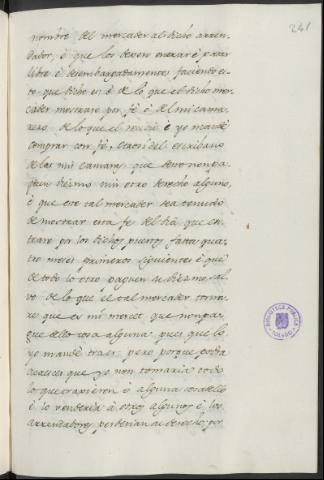 241
nombre del mercader al dicho arren-
dador, é que los dexen entrar é passar
libre é desembargadamente faciendo es-
to que dicho es é de lo que el dicho mer-
cader mostrare por fé é del mi cama-
rero de lo que el mercó é yo mandé
comprar con fé, del escribano
de las mis camaras que desto non pa-
guen diesmo nin otro derecho alguno,
é que este tal mercader sea tenudo
de mostrar esta fe del dia que en-
trare por los dichos puertos fasta qua-
tro meses primeros siguientes é que
de todo lo otro paguen el diesmo sal-
vo de lo que el tal mercader toma-
re que es mi merced que non pa-
gue dello cosa alguna pues que lo
yo mandé traer, pero porque podria
acaescer que yo non tomaria todo
lo que trajieren é alguna cosa dello
é lo venderia á otros algunos é los
arrendatores perderian el derecho, por
BIBLIOTECA PUBLICA
TOLEDO